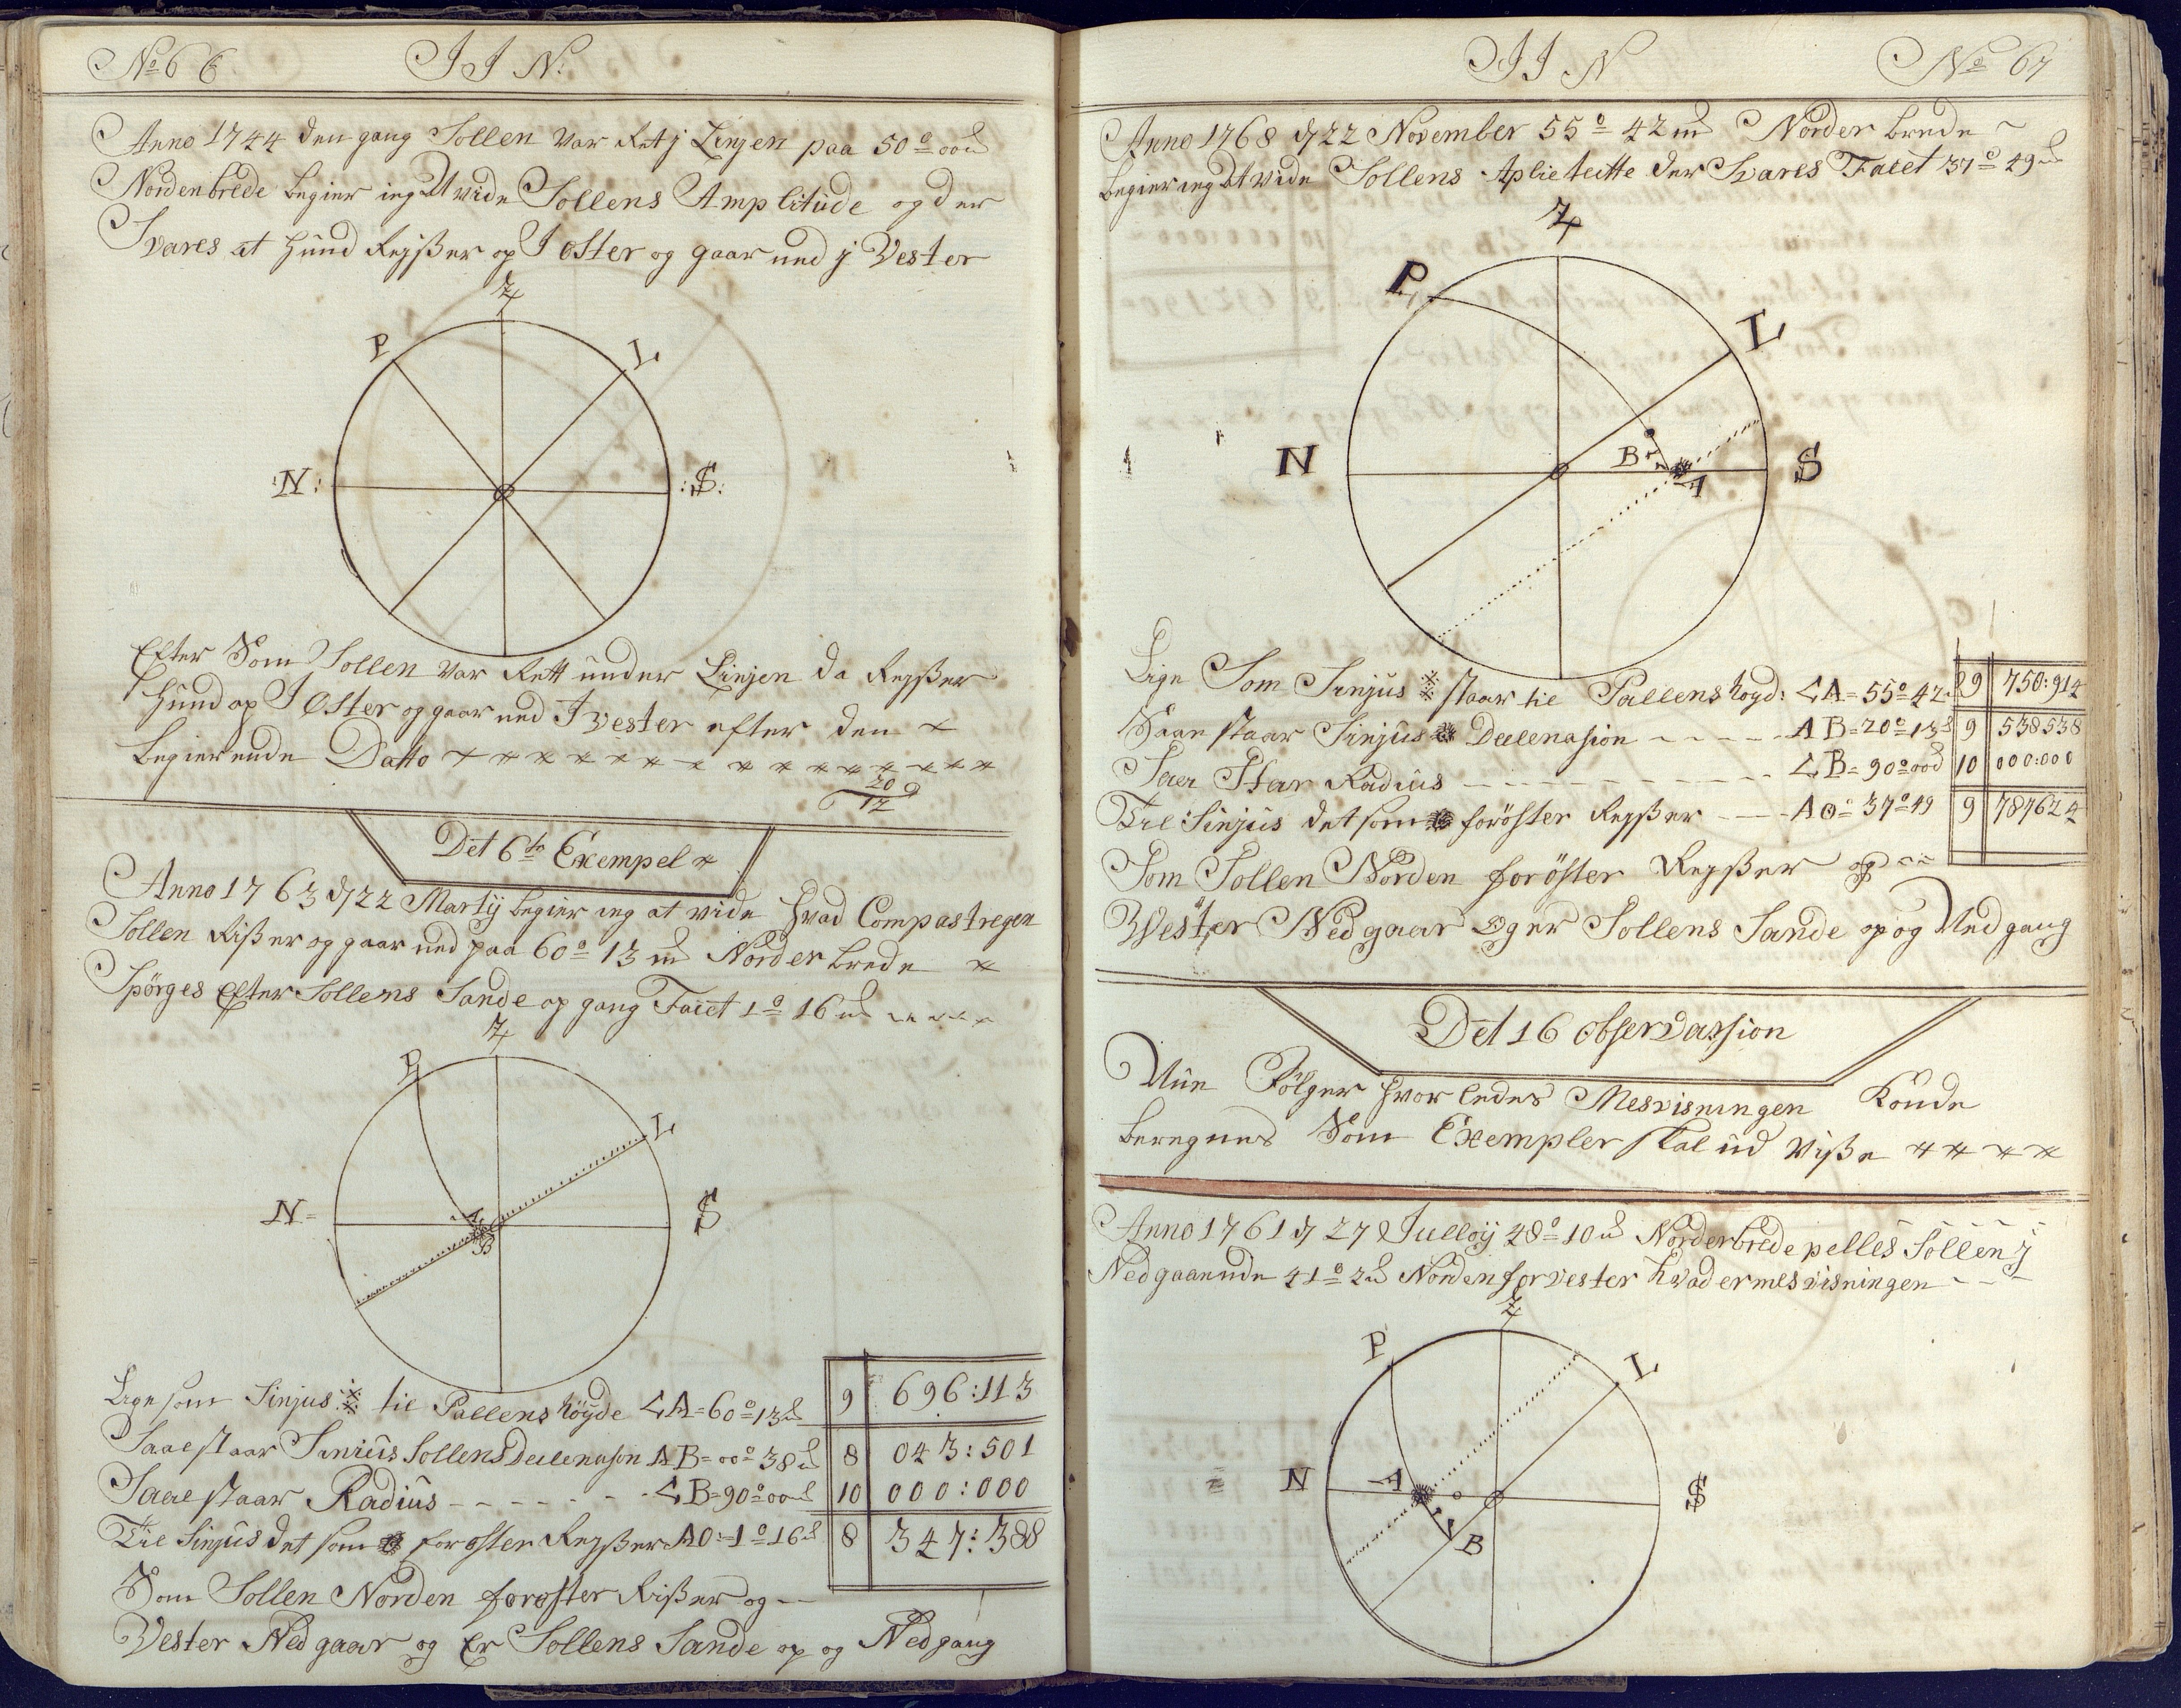 No 66 I I N:
Anno 1744 den gang Sollen var Ret j Linjen paa 50° 00m
Norden brede begier ieg at vide Sollens Amplitude og der
Svares at hund Rejßer op J oster og gaar ned j Vester
Z
P
L
:N:
:S:
Efter Som Sollen var Rett under Linjen da Rejßer
hund op J Oster og gaar ned J vester efter den
begierende Datto
20
12
Det 6te Exempel
Anno 1763 d 22 Martij begier ieg at vide hvad Compastregen
Sollen Rißer og gaar ned paa 60° 13m Norder brede
Spörges efter Sollens Sande op gang Facet 1° 16m
Z
P
L
N
S
A
B
Lige som Sinjus til Pallens höyde <A=60°13m 9 696:113
Saae staar Sinius Sollens Declenasion AB=00°38m 8 043:501
Saae staar Radius <B=90°00m 10 000:000
Til Sinjus det som for oster Rejßer A0=1°16m 8 347:388
Som Sollen Norden for oster Rißer og
Vester Ned gaar og Er Sollens Sande op og Ned gang
I I N No 67
Anno 1768 d 22 November 55° 42m Norder brede
begier ieg at vide Sollens Aplieteitte der Svares Facet 37° 49m
Z
P
L
N
B
A
S
Lige Som Sinjus staar til Pallens höyd: <A=55°42 9 750:914
Saae staar Sinjus Declenasion AB=20°13 9 538538
Saa Star Radius <B=90°00 10 000:000
Til Sinjus det som for öster Rejßer A0=37°49 9 787624
Som Sollen Norden for öster Rejßer op
Wester Ned gaar og er Sollens Sande op og Ned gang
Det 16 observassion
Nun Fölger hvor ledes Mesvisningen Konde
beregnes Som Exempler skal ud viße
Anno 1761 d 27 Julloij 48° 10m Norderbrede pelles Sollen j
Nedgaande 41° 2m Norden for vester hvad er mesvisningen
Z
P
L
N
A
S
B